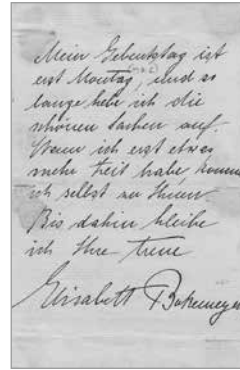 Mein Geburtstag ist
erst Montag, und so
lange hebe ich die
schönen Sachen auf.
Wenn ich erst etwas
mehr Zeit habe, komme
ich selbst zu Ihnen.
Bis dahin bleibe
ich Ihre treue
Elisabeth